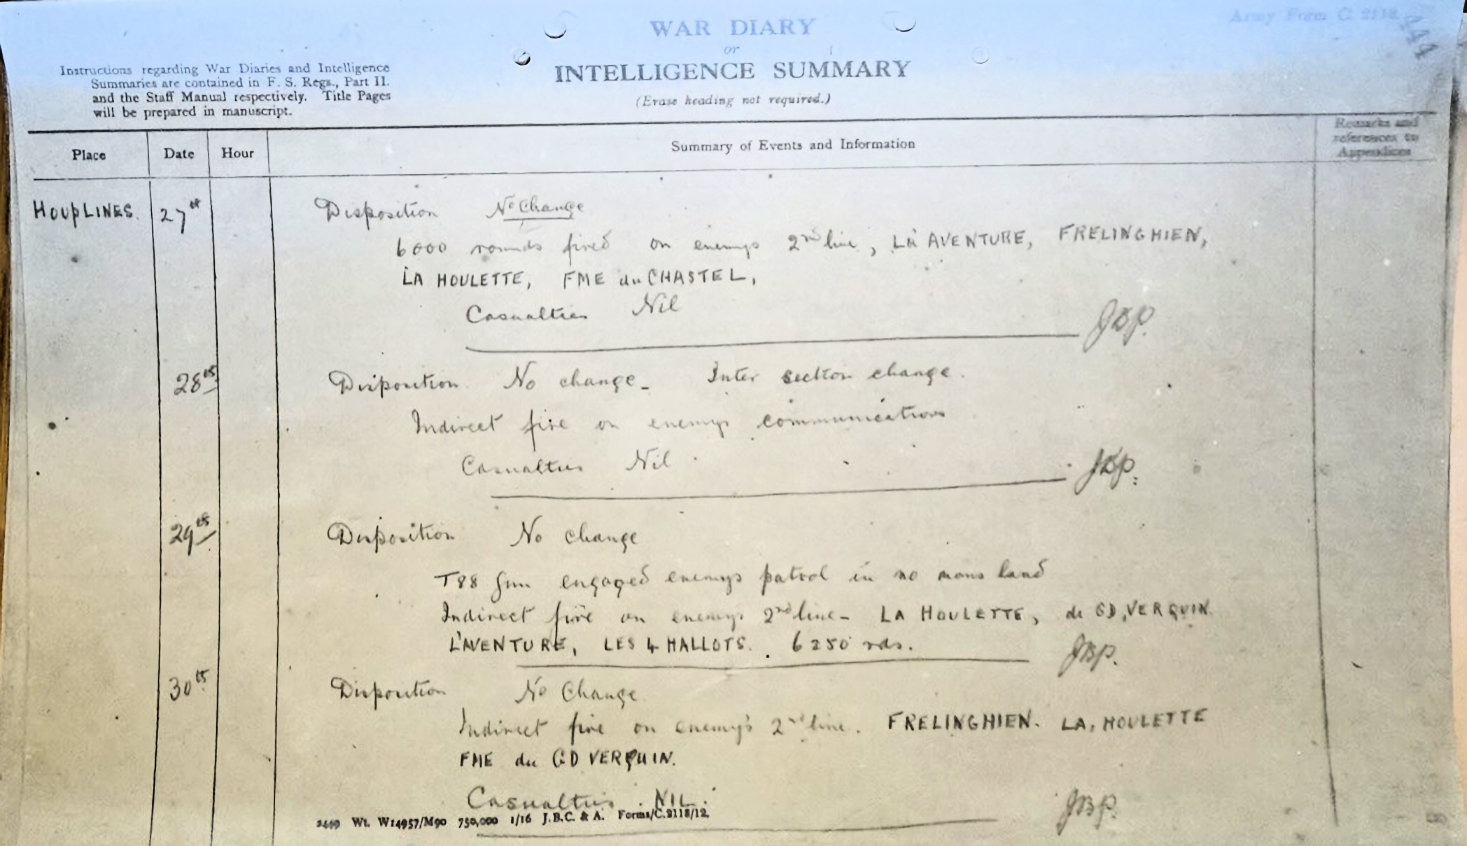 WAR DIARY
or
INTELLIGENCE SUMMARY
(Erase heading not required.)
Army Form C. 2118
Instructions regarding War Diaries and Intelligence
Summaries are contained in F. S. Regs., Part II.
and the Staff Manual respectively. Title Pages
will be prepared in manuscript.
Place Date Hour Summary of Events and Information Remarks and
references to
Appendices
HOUPLINES. 27th Disposition No Change
6000 rounds fired on enemys 2nd line, LA AVENTURE, FRELINGHIEN,
LA HOULETTE, FME du CHASTEL,
Casualties Nil JBP.
28th Disposition No change - Inter section change.
Indirect fire on enemys communications
Casualties Nil JBP.
29th Disposition No change
T88 Gun engaged enemys patrol in no mans land
Indirect fire on enemys 2nd line - LA HOULETTE, de GD, VERQUIN
L'AVENTURE, LES 4 HALLOTS. 6250 rds. JBP.
30th Disposition No Change
Indirect fire on enemy's 2nd line. FRELINGHIEN. LA, HOULETTE
FME du GD VERQUIN.
Casualties NIL. JBP.
2449 Wt. W14957/M90 750,000 1/16 J.B.C. & A. Forms/C.2118/12.